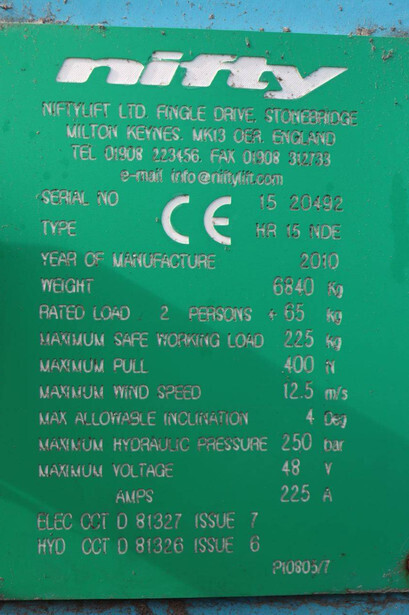 nifty
NIFTYLIFT LTD. FINGLE DRIVE, STONEBRIDGE
MILTON KEYNES. MK13 OER. ENGLAND
TEL 01908 223456. FAX 01908 312733
e-mail info@niftylift.com
SERIAL NO CE 15 20492
TYPE HR 15 NDE
YEAR OF MANUFACTURE 2010
WEIGHT 6840 Kg
RATED LOAD 2 PERSONS + 65 Kg
MAXIMUM SAFE WORKING LOAD 225 Kg
MAXIMUM PULL 400 N
MAXIMUM WIND SPEED 12.5 m/s
MAX ALLOWABLE INCLINATION 4 Deg
MAXIMUM HYDRAULIC PRESSURE 250 bar
MAXIMUM VOLTAGE 48 V
AMPS 225 A
ELEC CCT D 81327 ISSUE 7
HYD CCT D 81326 ISSUE 6
P10805/7